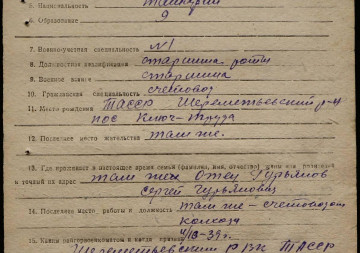 5. Национальность
6. Образование 9
7. Военно-учетная специальность №1
8. Должностная квалификация старшина роты
9. Военное звание старшина
10. Гражданская специальность счетовод
11. Место рождения ТАССР Шереметьевский р-н
пос Ключ-Труда
12. Последнее место жительства там же.
13. Где проживает в настоящее время семья (фамилия, имя, отчество)
и точный их адрес там же Отец Гурьянов
Сергей Гурьянович
14. Последнее место работы и должность там же - счетоводом
колхоза
15. Каким райгорвоенкоматом и когда призван 4/IX-39г.
Шереметьевским РВК ТАССР